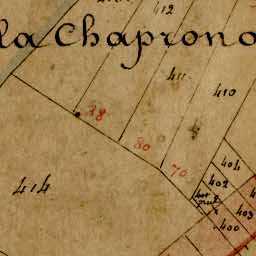 412
la Chaprono
411
410
38
80
70
404
402
414
403
400